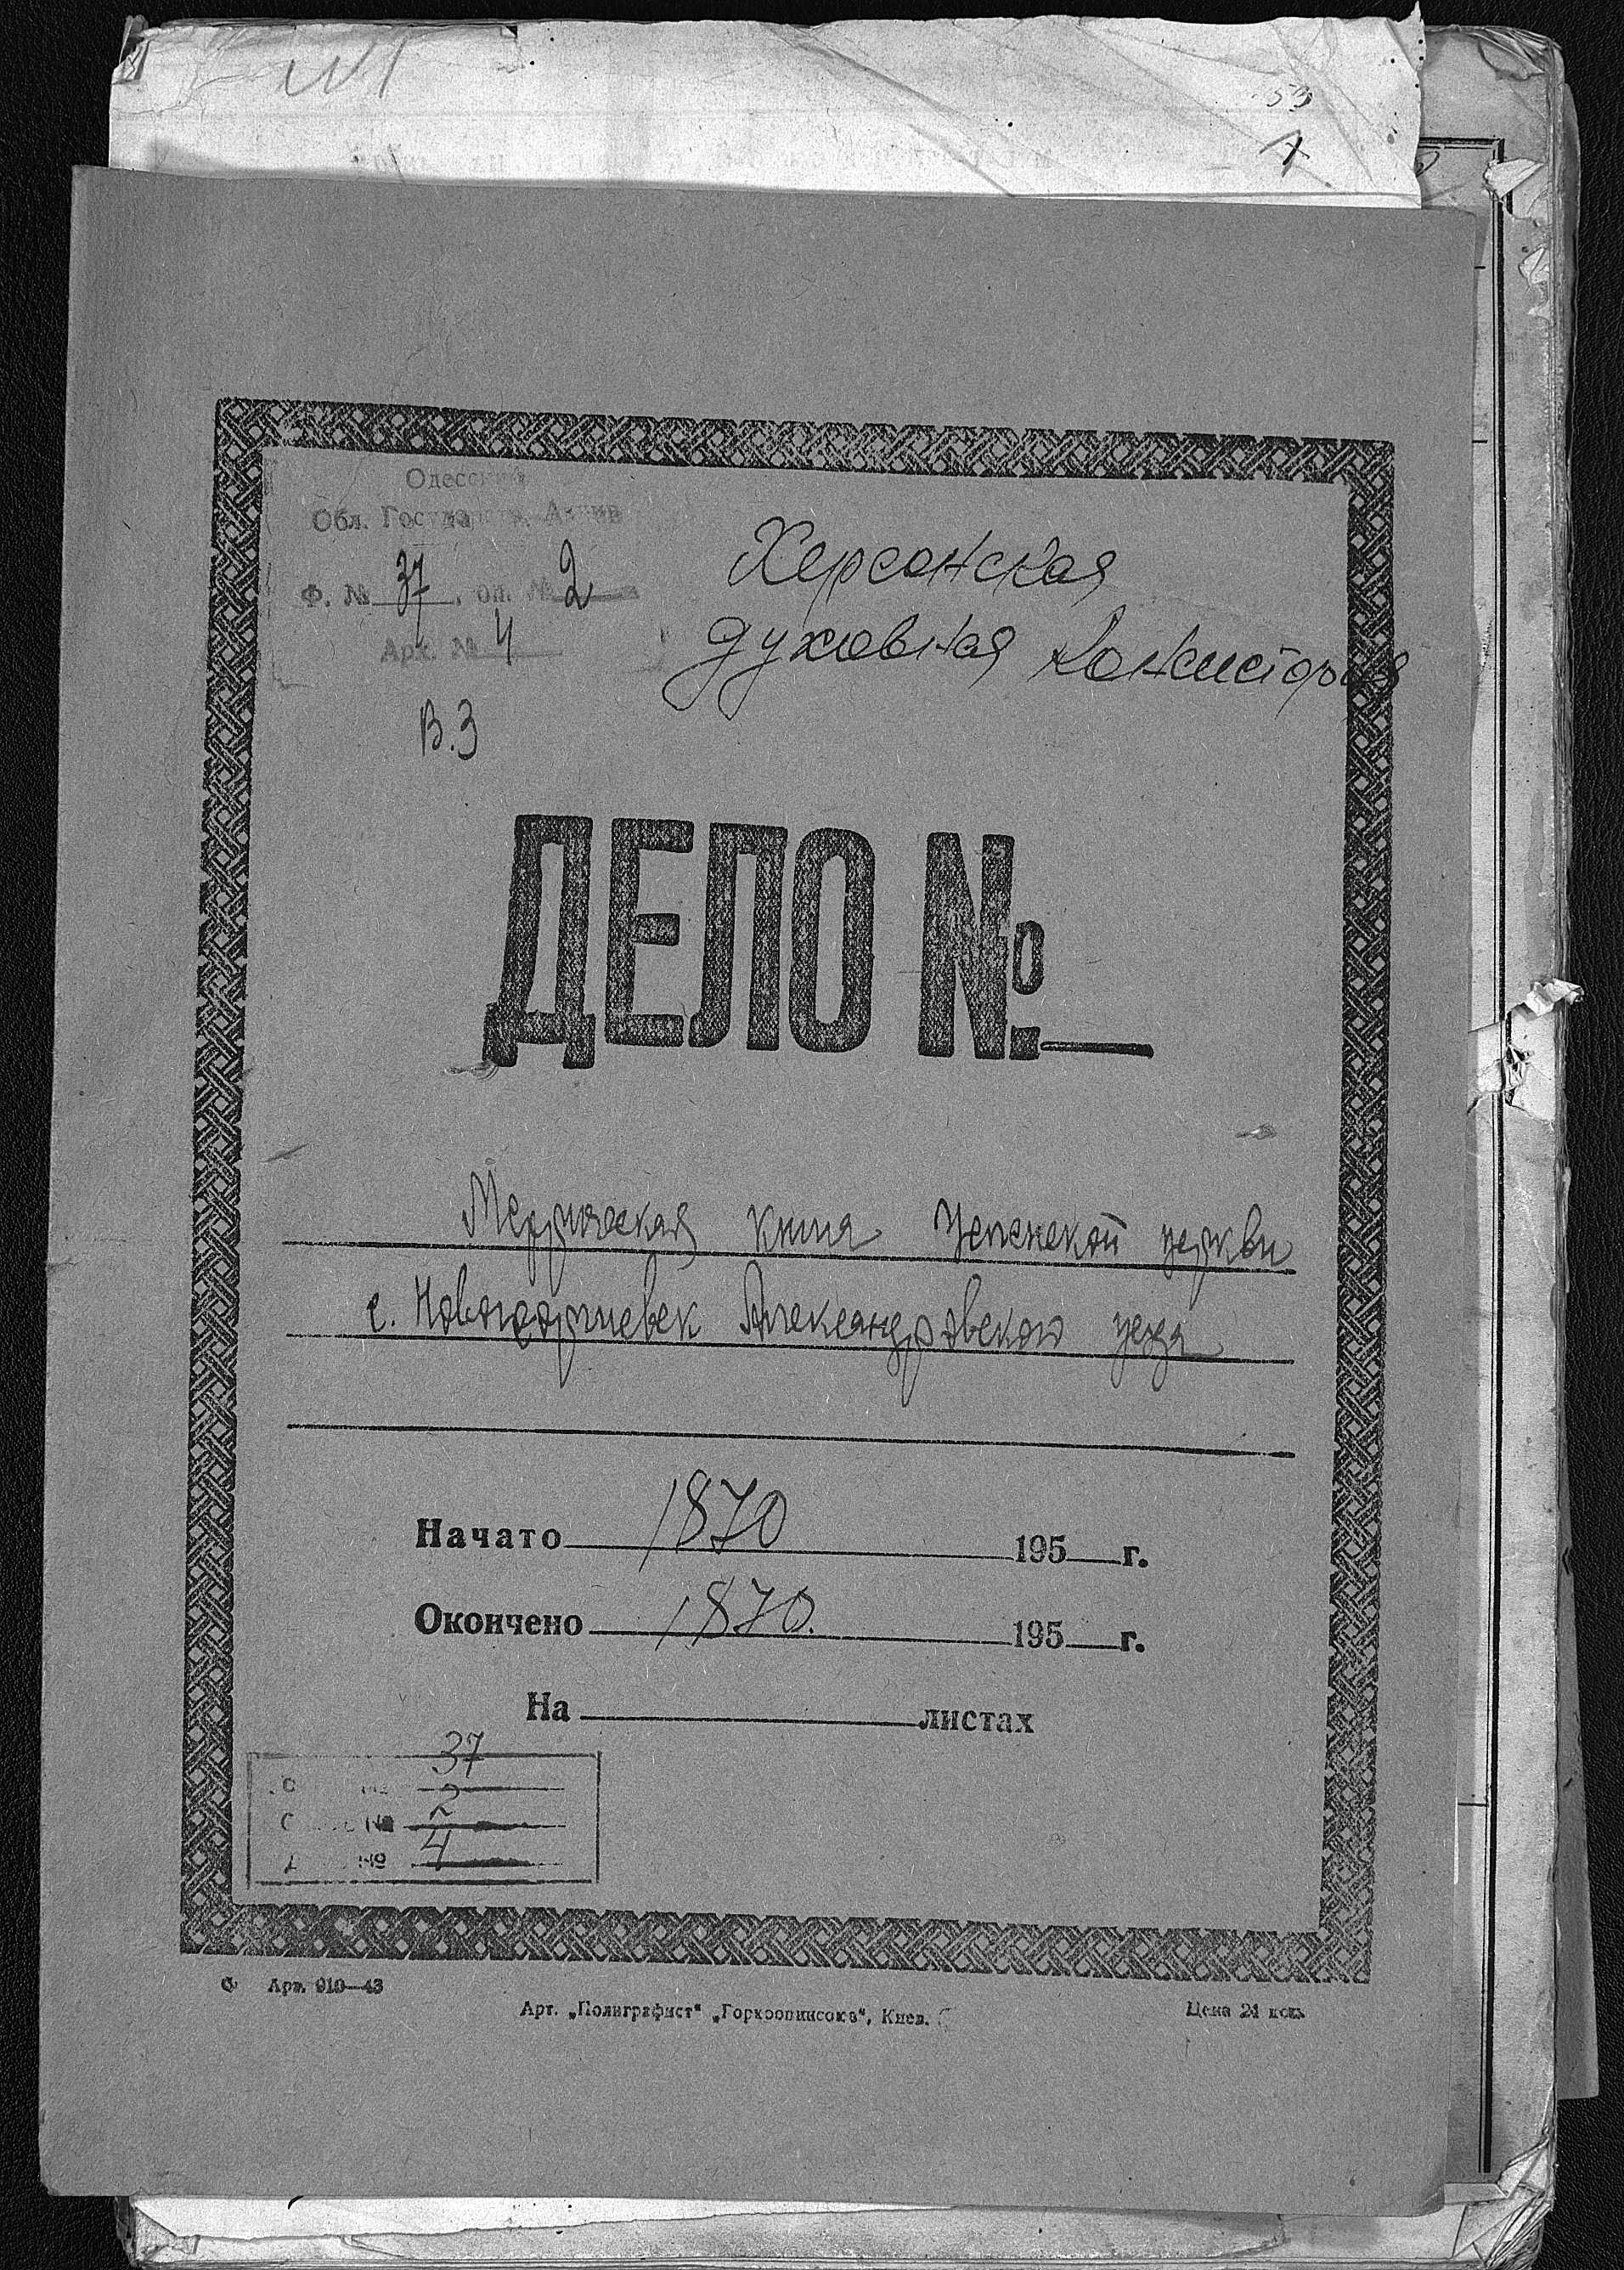 59
1
Одесский
Обл. Государств. Архив
Ф. № 37, оп. № 2
Арх. № 4
Херсонская
духовная консистория
В.3
ДЕЛО №
Метрическая книга Успенской церкви
с. Новогеоргиевск Александровского уезда
Начато 1870 195 г.
Окончено 1870. 195 г.
На листах
37
№ 2
№ 4
Арт. 910—43
Арт. „Полиграфист“ „Горкоопинсоюз“, Киев.
Цена 24 коп.